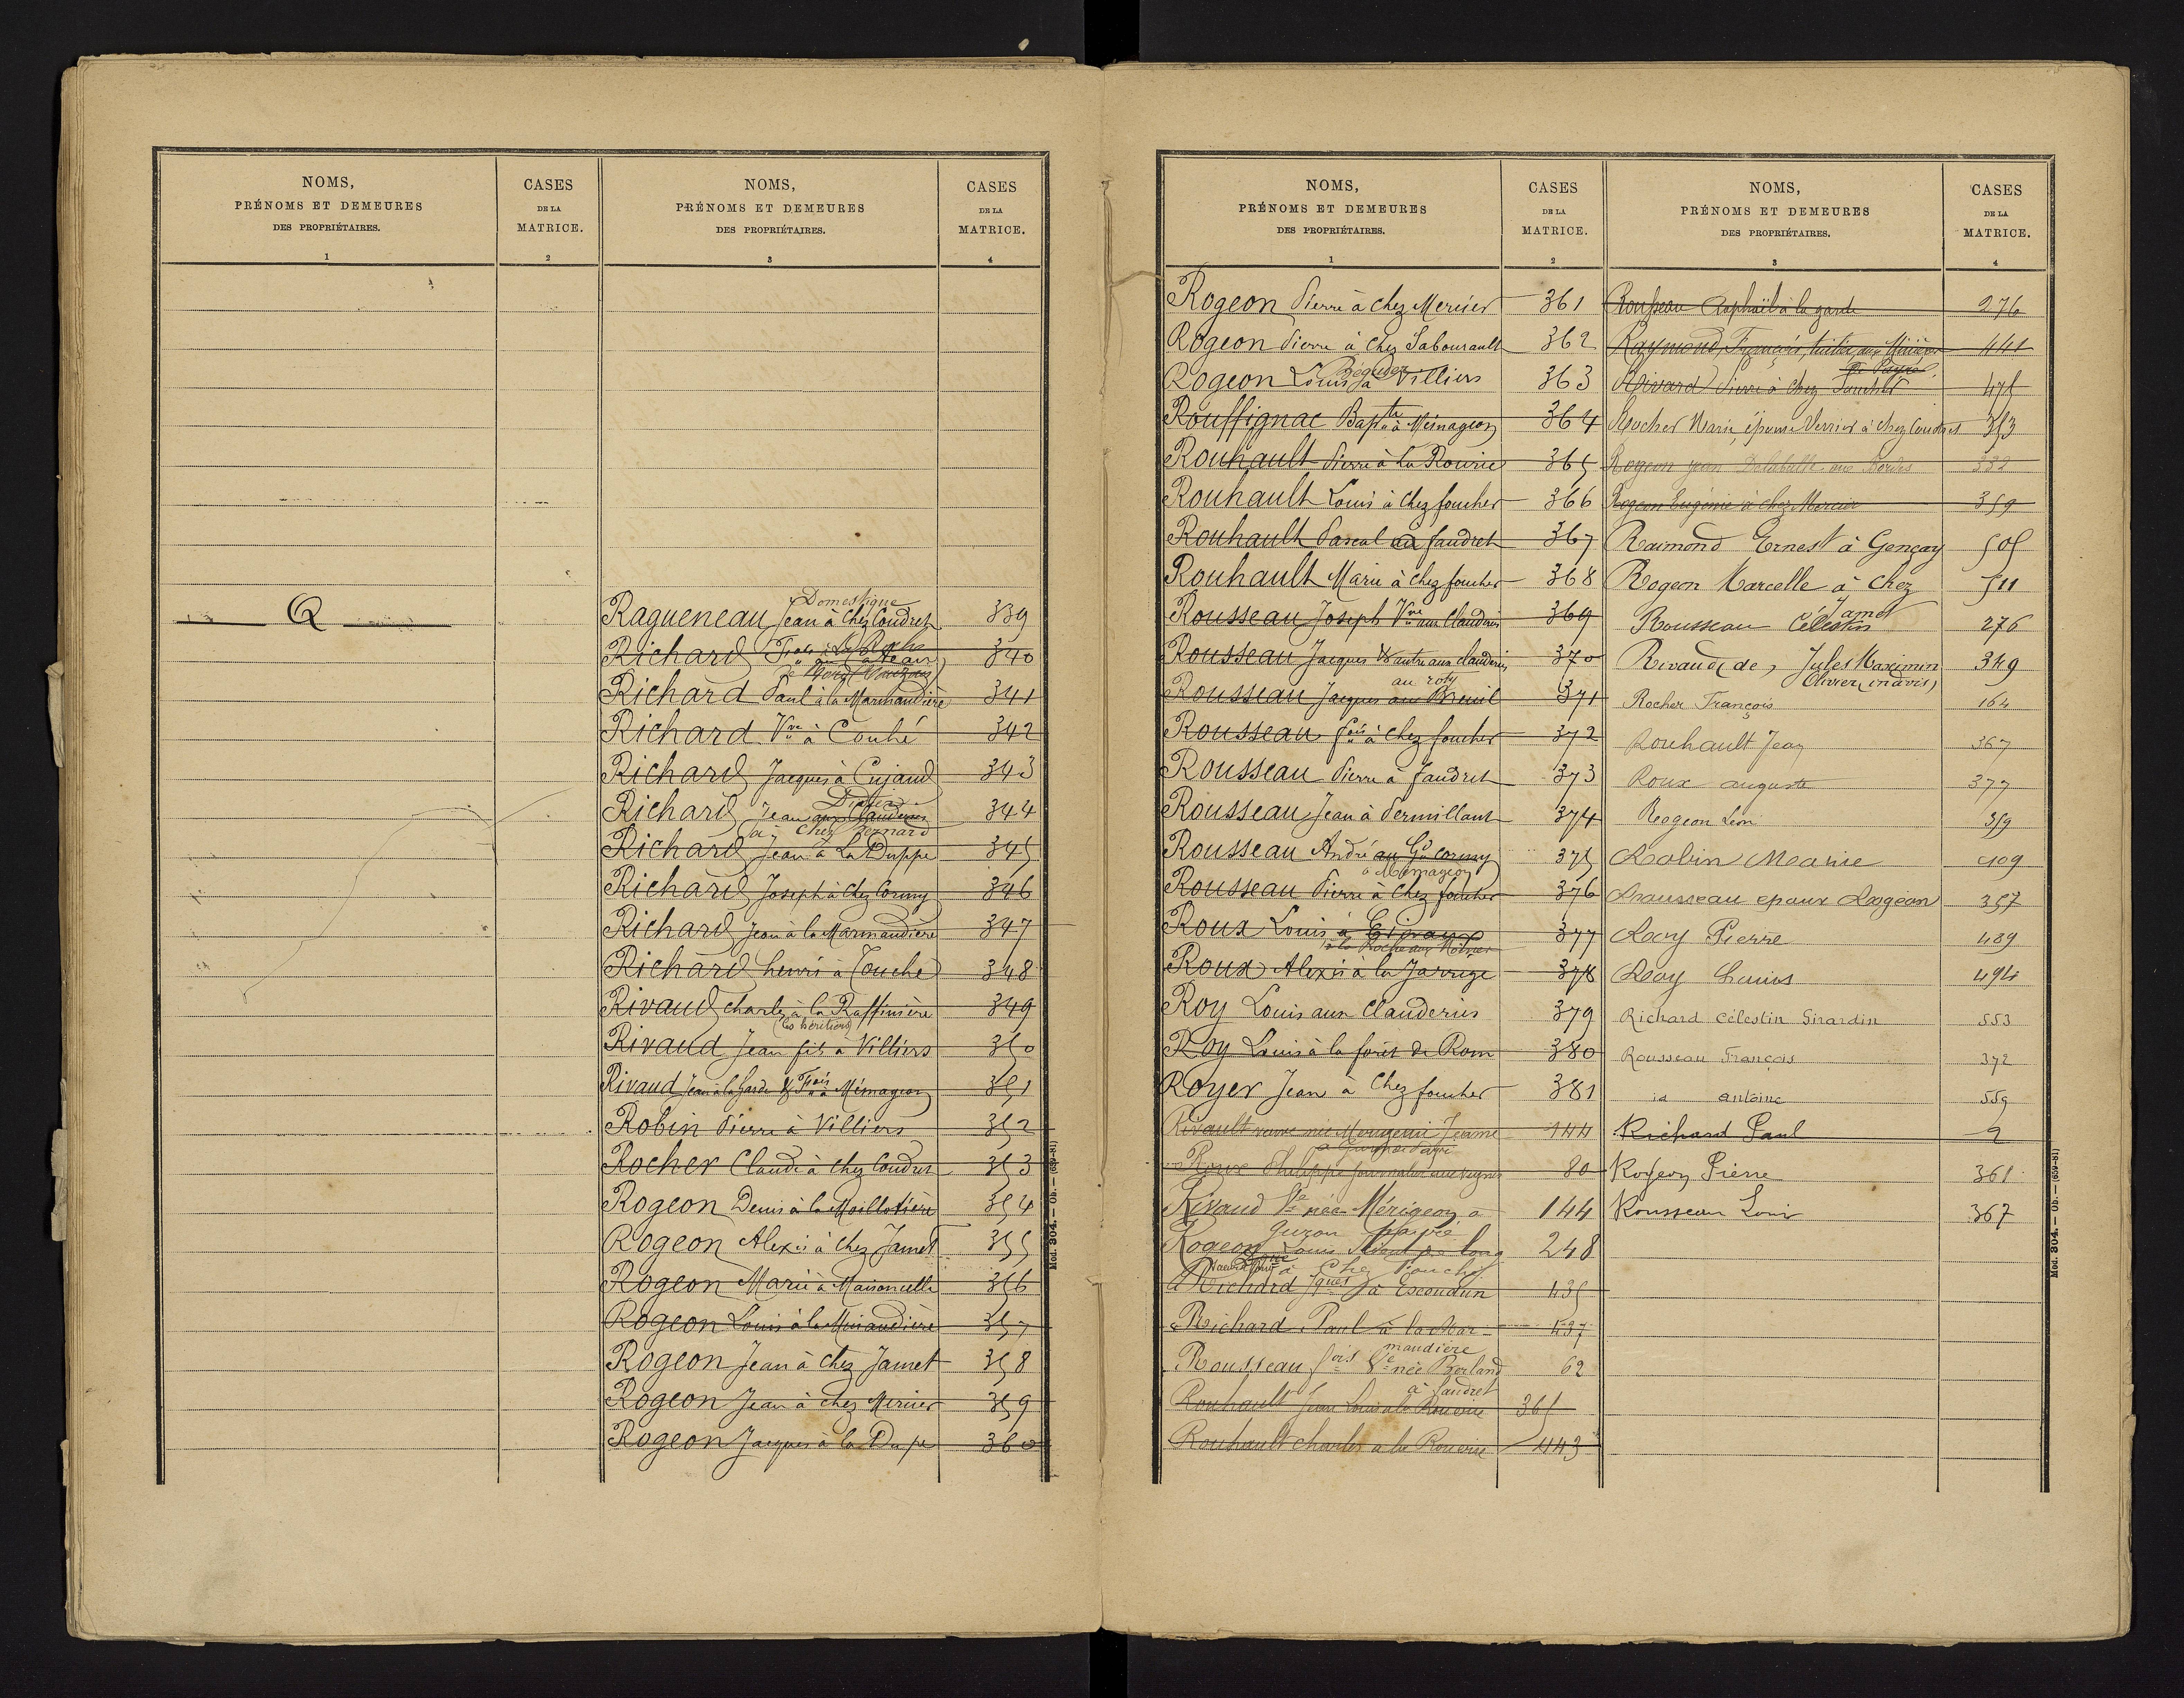 NOMS,
PRÉNOMS ET DEMEURES
DES PROPRIÉTAIRES.
1
CASES
DE LA
MATRICE.
2
Q
NOMS,
PRÉNOMS ET DEMEURES
DES PROPRIÉTAIRES.
3
CASES
DE LA
MATRICE.
4
Domestique
Ragueneau Jean à Chez Coudret 339
Richard 340
Richard Paul à la Marmaudière 341
Richard Vve à Couhé 342
Richard Jacques à Cujaud 343
Richard Jean aux Clauderies 344
à chez Bernard
Richard Jean à La Duppe 345
Richard Joseph à Chez Cormy 346
Richard Jean à la Marmaudière 347
Richard henri à Couché 348
Rivaud Charles à la Raffinière 349
(les héritiers)
Rivaud Jean fils à Villiers 350
Rivaud Jean à la Garde & Frois à Mémageon 351
Robin Pierre à Villiers 352
Rocher Claude à chez Coudret 353
Rogeon Denis à la Maillotière 354
Rogeon Alexis à chez Jamet 355
Rogeon Marie à Maisoncelle 356
Rogeon Louis à la Miraudière 357
Rogeon Jean à chez Jamet 358
Rogeon Jean à chez Mercier 359
Rogeon Jacques à la Dupe 360
Mod. 304. — Ob. — (659-81)
NOMS,
PRÉNOMS ET DEMEURES
DES PROPRIÉTAIRES.
1
CASES
DE LA
MATRICE.
2
Rogeon Pierre à chez Mercier 361
Rogeon Pierre à chez Sabourault 362
Rogeon Louis à Villiers 363
Rouffignac Bapte à Mémageon 364
Rouhault Pierre à la Rourie 365
Rouhault Louis à chez foucher 366
Rouhault Pascal à faudret 367
Rouhault Marie à chez foucher 368
Rousseau Joseph Vve aux Clauderies 369
Rousseau Jacques & autre aux clauderies 370
au roty
Rousseau Jacques au Breuil 371
Rousseau fois à chez foucher 372
Rousseau Pierre à faudret 373
Rousseau Jean à Permillant 374
Rousseau André au Gd cormy 375
à Mémageon
Rousseau Pierre à chez foucher 376
Roux Louis à 377
Roux Alexis à la Jarrige 378
Roy Louis aux Clauderies 379
Roy Louis à la forêt de Rom 380
Royer Jean à chez foucher 381
Rivault veuve née Merigeau Jeanne 144
Roux Philippe journalier aux vignes 80
Rivaud Ve née Mérigeon a 144
Rogeon Louis 248
à Chez
Richard Jques à Escoudun 435
Richard Paul à la Mar- 437
maudière
Rousseau fois Ve née Berland 62
à faudret
Rouhault Jean Louis à la Rouerie 365
Rouhault charles a la Rouerie 443
NOMS,
PRÉNOMS ET DEMEURES
DES PROPRIÉTAIRES.
3
CASES
DE LA
MATRICE.
4
Rousseau Raphaël à la garde 276
Raymond François, 441
Rivard Pierre à chez Foucher 475
Rocher Marie épouse Verrier à chez Coudret 353
Rogeon jean aux Bordes 332
Rogeon Eugénie à chez Mercier 359
Raimond Ernest à Gençay 505
Rogeon Marcelle à chez 511
Jamet
Rousseau Célestin 276
Rivaud (de) Jules Maximin 349
Olivier (indivis)
Rocher François 164
Rouhault Jean 367
Roux auguste 377
Rogeon Léon 359
Robin Marie 409
Rousseau epoux Rogeon 357
Roy Pierre 489
Roy Louis 494
Richard Célestin Girardin 553
Rousseau François 372
id antoine 559
Richard Paul 9
Rogeon Pierre 361
Rousseau Louis 367
Mod. 304. — Ob. — (659-81)